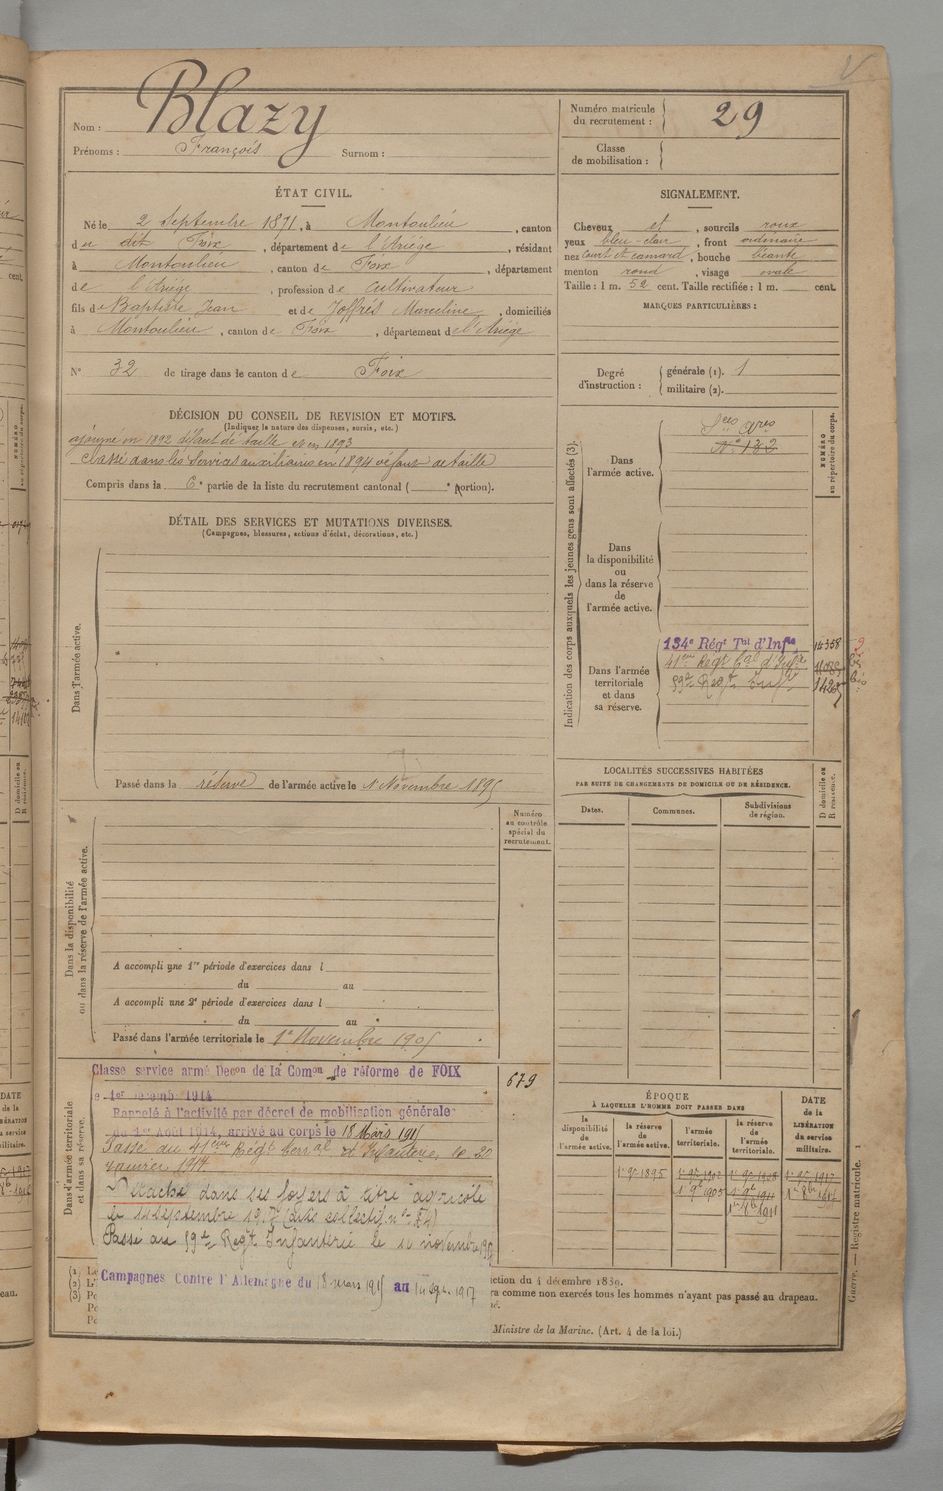 Nom : Blazy
Prénoms : François Surnom :
Numéro matricule
du recrutement : 29
Classe
de mobilisation :
ÉTAT CIVIL.
Né le 2 Septembre 1871, à Montoulieu, canton
du dit Foix, département de l'Ariège, résidant
à Montoulieu, canton de Foix, département
de l'Ariège, profession de Cultivateur
fils de Baptiste Jean et de Joffrés Marceline, domiciliés
à Montoulieu, canton de Foix, département de l'Ariège
N° 32 de tirage dans le canton de Foix
SIGNALEMENT.
Cheveux et, sourcils roux
yeux bleu-clair, front ordinaire
nez court et camard, bouche béante
menton rond, visage ovale
Taille : 1 m. 52 cent. Taille rectifiée : 1 m. cent.
MARQUES PARTICULIÈRES :
Degré
d'instruction :
générale (1). 1
militaire (2).
DÉCISION DU CONSEIL DE REVISION ET MOTIFS.
(Indiquer la nature des dispenses, sursis, etc.)
ajourné en 1892 défaut de taille et en 1893
Classé dans les Services auxiliaires en 1894 défaut de taille
Compris dans la 6e partie de la liste du recrutement cantonal ( e portion).
DÉTAIL DES SERVICES ET MUTATIONS DIVERSES.
(Campagnes, blessures, actions d'éclat, décorations, etc.)
Dans l'armée active.
Passé dans la réserve de l'armée active le 1 Novembre 1895
Indication des corps auxquels les jeunes gens sont affectés (3).
NUMÉRO
au répertoire du corps.
Dans
l'armée active.
N° 132
Dans
la disponibilité
ou
dans la réserve
de
l'armée active.
Dans l'armée
territoriale
et dans
sa réserve.
134e Régt Tial d'Infie
41ème Régt Cal d'Infie
59e Regt Infie
LOCALITÉS SUCCESSIVES HABITÉES
PAR SUITE DE CHANGEMENTS DE DOMICILE OU DE RÉSIDENCE.
Dates.
Communes.
Subdivisions
de région.
D domicile ou
R résidence.
Numéro
au contrôle
spécial du
recrutement.
Dans la disponibilité
ou dans la réserve de l'armée active.
A accompli une 1re période d'exercices dans l
du au
A accompli une 2e période d'exercices dans l
du au
Passé dans l'armée territoriale le 1er Novembre 1905
Dans l'armée territoriale
et dans sa réserve.
Classé service armé Decon de la Comon de réforme de FOIX
679
Rappelé à l'activité par décret de mobilisation générale
du 1er Août 1914, arrivé au corps le 18 Mars 1915
Passé au 41ème Régt d'Infanterie, le 20
janvier 1917
Détaché dans ses foyers à titre agricole
Passé au 59e Regt Infanterie le 10 novembre
Campagnes Contre l'Allemagne du 18 mars 1915 au 14 Sep. 1917
ÉPOQUE
À LAQUELLE L'HOMME DOIT PASSER DANS
la
disponibilité
de
l'armée active.
la réserve
de
l'armée active.
l'armée
territoriale.
la réserve
de
l'armée
territoriale.
DATE
de la
LIBÉRATION
du service
militaire.
1er 9bre 1895
ction du 4 décembre 1889.
ra comme non exercés tous les hommes n'ayant pas passé au drapeau.
Ministre de la Marine. (Art. 4 de la loi.)
Guerre. — Registre matricule. 1